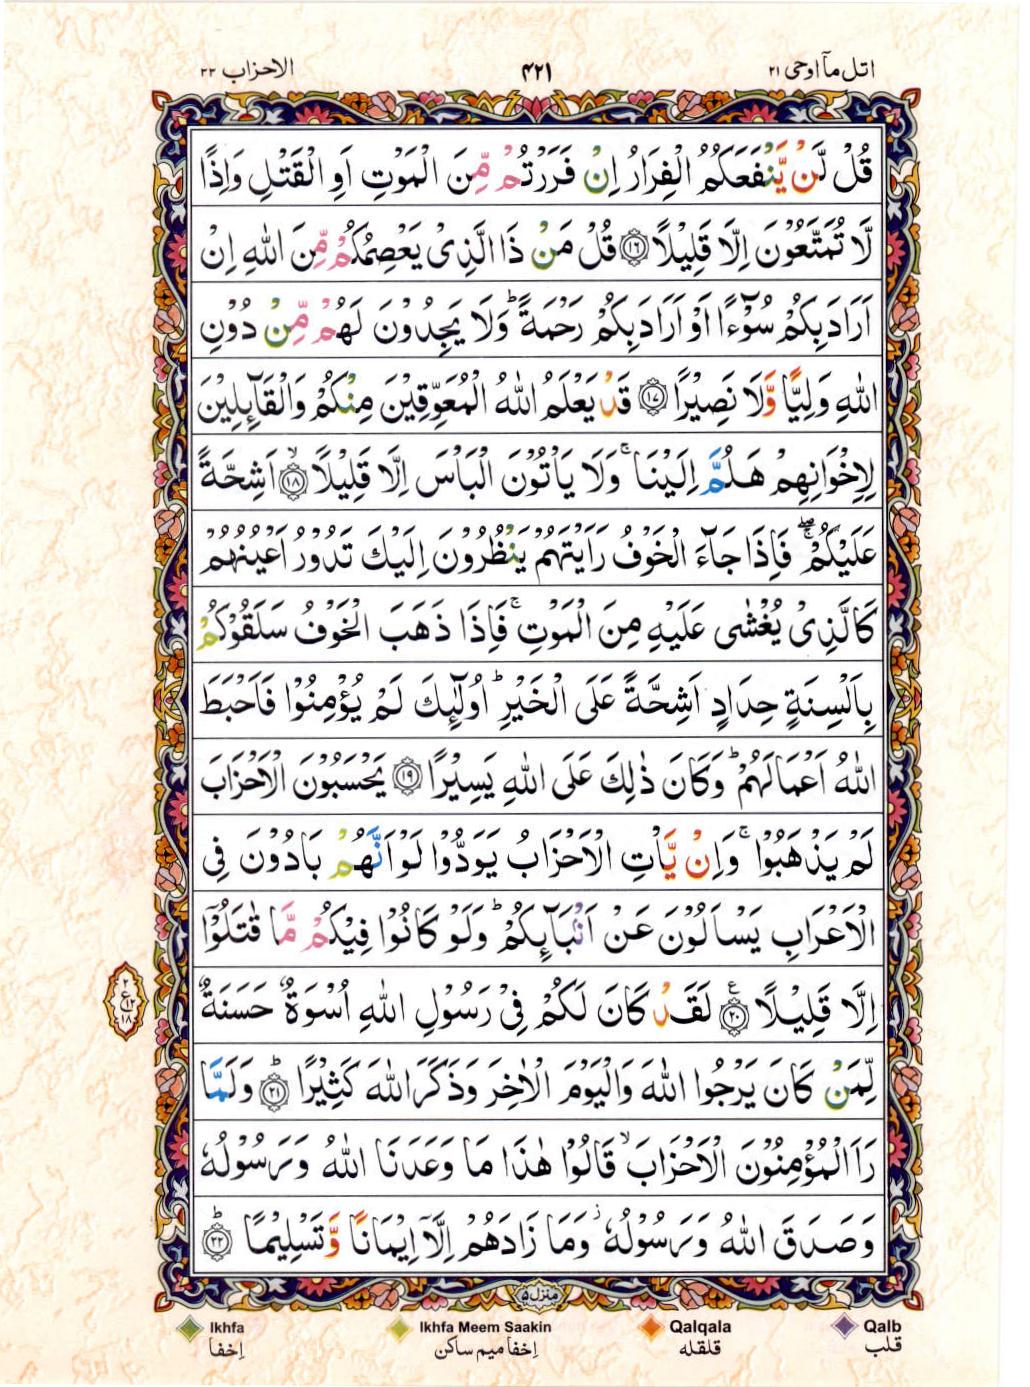 اتل مآ اوحی ۲۱ ۴۲۱ الاحزاب ۳۳
قُلْ لَّنْ يَّنْفَعَكُمُ الْفِرَارُ اِنْ فَرَرْتُمْ مِّنَ الْمَوْتِ اَوِ الْقَتْلِ وَاِذًا
لَّا تُمَتَّعُوْنَ اِلَّا قَلِيْلًا ﴿۱۶﴾ قُلْ مَنْ ذَا الَّذِیْ يَعْصِمُكُمْ مِّنَ اللّٰهِ اِنْ
اَرَادَ بِكُمْ سُوْٓءًا اَوْ اَرَادَ بِكُمْ رَحْمَةً ؕ وَلَا يَجِدُوْنَ لَهُمْ مِّنْ دُوْنِ
اللّٰهِ وَلِيًّا وَّلَا نَصِيْرًا ﴿۱۷﴾ قَدْ يَعْلَمُ اللّٰهُ الْمُعَوِّقِيْنَ مِنْكُمْ وَالْقَآىِٕلِيْنَ
لِاِخْوَانِهِمْ هَلُمَّ اِلَيْنَا ۚ وَلَا يَاْتُوْنَ الْبَاْسَ اِلَّا قَلِيْلًا ﴿۱۸﴾ۙ اَشِحَّةً
عَلَيْكُمْ ۖۚ فَاِذَا جَآءَ الْخَوْفُ رَاَيْتَهُمْ يَنْظُرُوْنَ اِلَيْكَ تَدُوْرُ اَعْيُنُهُمْ
كَالَّذِیْ يُغْشٰى عَلَيْهِ مِنَ الْمَوْتِ ۚ فَاِذَا ذَهَبَ الْخَوْفُ سَلَقُوْكُمْ
بِاَلْسِنَةٍ حِدَادٍ اَشِحَّةً عَلَى الْخَيْرِ ؕ اُولٰٓىِٕكَ لَمْ يُؤْمِنُوْا فَاَحْبَطَ
اللّٰهُ اَعْمَالَهُمْ ؕ وَكَانَ ذٰلِكَ عَلَى اللّٰهِ يَسِيْرًا ﴿۱۹﴾ يَحْسَبُوْنَ الْاَحْزَابَ
لَمْ يَذْهَبُوْا ۚ وَاِنْ يَّاْتِ الْاَحْزَابُ يَوَدُّوْا لَوْ اَنَّهُمْ بَادُوْنَ فِی
الْاَعْرَابِ يَسْاَلُوْنَ عَنْ اَنْۢبَآىِٕكُمْ ؕ وَلَوْ كَانُوْا فِيْكُمْ مَّا قٰتَلُوْٓا
اِلَّا قَلِيْلًا ﴿۲۰﴾ع لَقَدْ كَانَ لَكُمْ فِیْ رَسُوْلِ اللّٰهِ اُسْوَةٌ حَسَنَةٌ
۲ ع ۱۲ ۱۸
لِّمَنْ كَانَ يَرْجُوا اللّٰهَ وَالْيَوْمَ الْاٰخِرَ وَذَكَرَ اللّٰهَ كَثِيْرًا ﴿۲۱﴾ؕ وَلَمَّا
رَاَ الْمُؤْمِنُوْنَ الْاَحْزَابَ ۙ قَالُوْا هٰذَا مَا وَعَدَنَا اللّٰهُ وَرَسُوْلُهٗ
وَصَدَقَ اللّٰهُ وَرَسُوْلُهٗ ؗ وَمَا زَادَهُمْ اِلَّآ اِيْمَانًا وَّتَسْلِيْمًا ﴿۲۲﴾ؕ
منزل ۵
Ikhfa Ikhfa Meem Saakin Qalqala Qalb
اِخفا اِخفا میم ساکن قلقله قلب